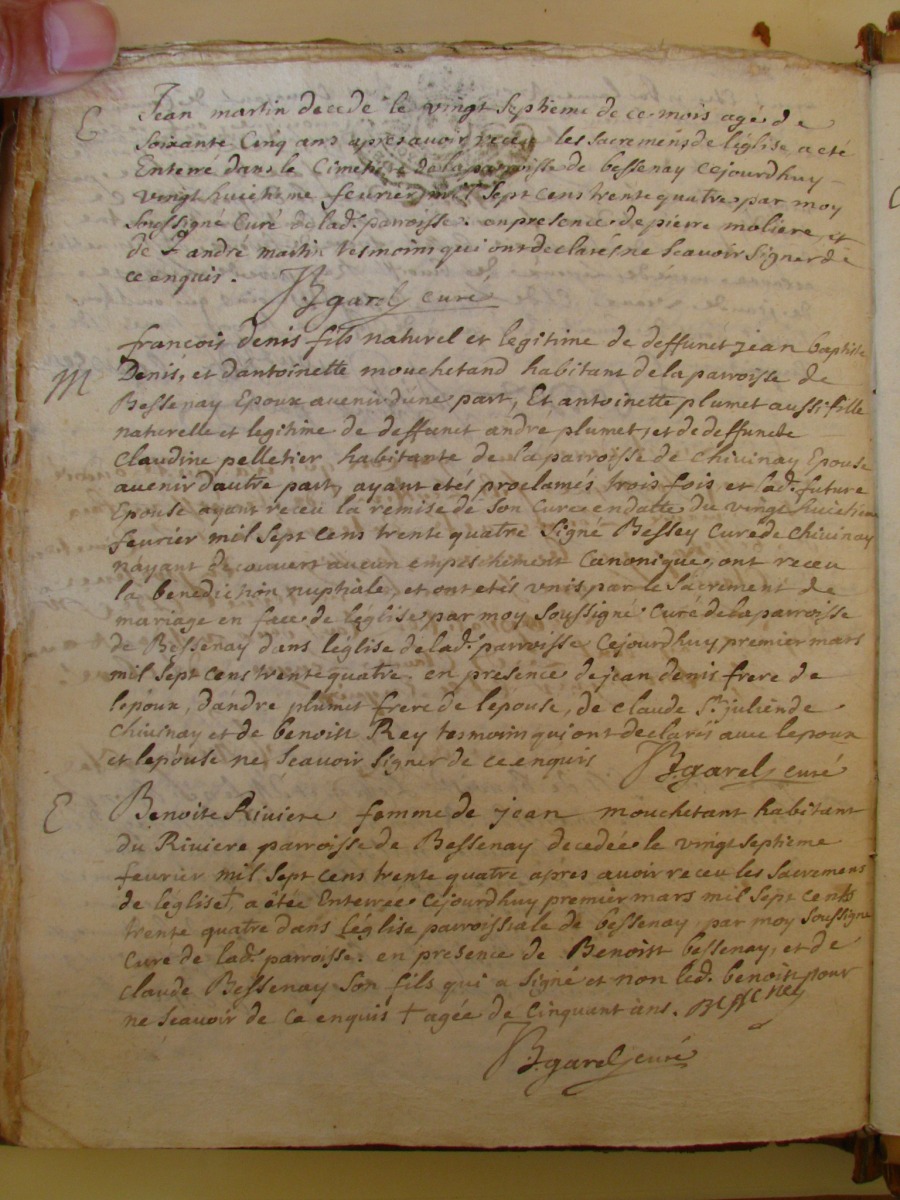 E
Jean martin decedé le vingt septieme de ce mois agé de
soixante cinq ans apres avoir receu les sacremens de l'église a eté
Enterré dans le Cimetiere de la parroisse de bessenay cejourdhuy
vingt huitieme fevrier mil sept cens trente quatre par moy
soussigné Curé de lad. parroisse. en presence de pierre moliere, et
de andré martin tesmoins qui ont declarés ne scavoir signer de
ce enquis.
B. garel curé
M
francois denis fils naturel et legitime de deffunct jean baptiste
Denis, et d'antoinette mouchetand habitant de la parroisse de
Bessenay Epoux avenir d'une part, Et antoinette plumet aussi fille
naturelle et legitime de deffunct andré plumet, et de deffuncte
Claudine pelletier habitante de la parroisse de Chivinay Epouse
avenir d'autre part, ayant etés proclamés trois fois et lad. future
Epouse ayant receu la remise de son Curé en datte du vingt huictieme
fevrier mil sept cens trente quatre signé Bessey curé de Chivinay
nayant decouvert aucun empeschement Canonique, ont receu
la benediction nuptiale, et ont etés unis par le Sacrement de
mariage en face de l'église, par moy soussigné Curé de la parroisse
de Bessenay dans l'église de lad. parroisse Cejourdhuy premier mars
mil sept cens trente quatre. en presence de jean denis frere de
l'epoux, d'andré plumet frere de lepouse, de Claude St. julien de
Chivinay et de benoist Rey tesmoins qui ont declarés avec lepoux
et lepouse ne scavoir signer de ce enquis
B. garel curé
E
Benoite Riviere femme de jean mouchetant habitant
du Riviere parroisse de Bessenay decedée le vingt septieme
fevrier mil sept cens trente quatre après avoir receu les sacremens
de léglise †, a étée Enterrée Cejourdhuy premier mars mil sept cents
trente quatre dans l'église parroissiale de bessenay, par moy soussigné
Curé de lad. parroisse. en presence de Benoist bessenay, et de
claude Bessenay son fils qui a signé et non led. benoist pour
ne scavoir de ce enquis † agée de Cinquant ans. Bessenay
B. garel curé